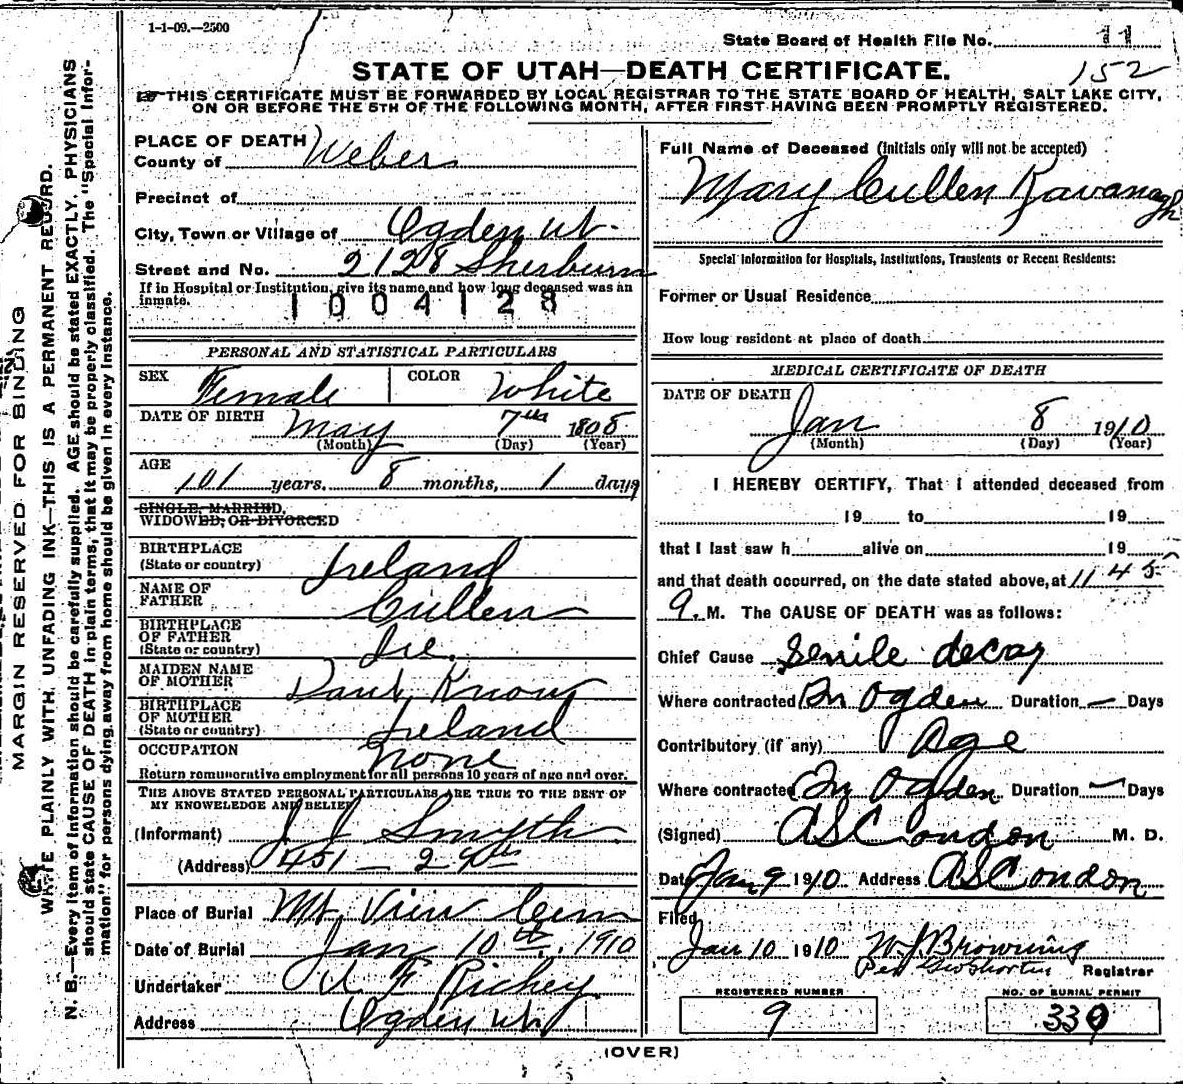 1-1-09.—2500
State Board of Health File No. 11
152
STATE OF UTAH—DEATH CERTIFICATE.
THIS CERTIFICATE MUST BE FORWARDED BY LOCAL REGISTRAR TO THE STATE BOARD OF HEALTH, SALT LAKE CITY,
ON OR BEFORE THE 5TH OF THE FOLLOWING MONTH, AFTER FIRST HAVING BEEN PROMPTLY REGISTERED.
MARGIN RESERVED FOR BINDING
WRITE PLAINLY WITH UNFADING INK—THIS IS A PERMANENT RECORD.
N. B.—Every item of information should be carefully supplied. AGE should be stated EXACTLY. PHYSICIANS
should state CAUSE OF DEATH in plain terms, that it may be properly classified. The "Special Infor-
mation" for persons dying away from home should be given in every instance.
PLACE OF DEATH
County of Weber
Precinct of
City, Town or Village of Ogden, Ut.
Street and No. 2128 Sherburn
If in Hospital or Institution, give its name and how long deceased was an
inmate.
1004128
PERSONAL AND STATISTICAL PARTICULARS
SEX Female COLOR White
DATE OF BIRTH May 7th 1808
(Month) (Day) (Year)
AGE
101 years, 8 months, 1 days
SINGLE, MARRIED,
WIDOWED, OR DIVORCED
BIRTHPLACE
(State or country) Ireland
NAME OF
FATHER Cullen
BIRTHPLACE
OF FATHER
(State or country) Ire.
MAIDEN NAME
OF MOTHER Dont Know
BIRTHPLACE
OF MOTHER
(State or country) Ireland
OCCUPATION None
Return remunerative employment for all persons 10 years of age and over.
THE ABOVE STATED PERSONAL PARTICULARS ARE TRUE TO THE BEST OF
MY KNOWLEDGE AND BELIEF
(Informant) J J Smyth
(Address) 451 — 29th
Place of Burial Mt. View Cem
Date of Burial Jan 10th, 1910
Undertaker Richey
Address Ogden Ut
Full Name of Deceased (Initials only will not be accepted)
Mary Cullen Kavanagh
Special Information for Hospitals, Institutions, Transients or Recent Residents:
Former or Usual Residence
How long resident at place of death
MEDICAL CERTIFICATE OF DEATH
DATE OF DEATH
Jan 8 1910
(Month) (Day) (Year)
I HEREBY CERTIFY, That I attended deceased from
19 to 19
that I last saw h alive on 19
and that death occurred, on the date stated above, at 11 45
M. The CAUSE OF DEATH was as follows:
Chief Cause Senile decay
Where contracted In Ogden Duration — Days
Contributory (if any) Age
Where contracted In Ogden Duration — Days
(Signed) AS Condon M. D.
Date Jan 9 1910 Address AS Condon
Filed
Jan 10 1910 W J Browning
Per Registrar
REGISTERED NUMBER
9
NO. OF BURIAL PERMIT
339
(OVER)